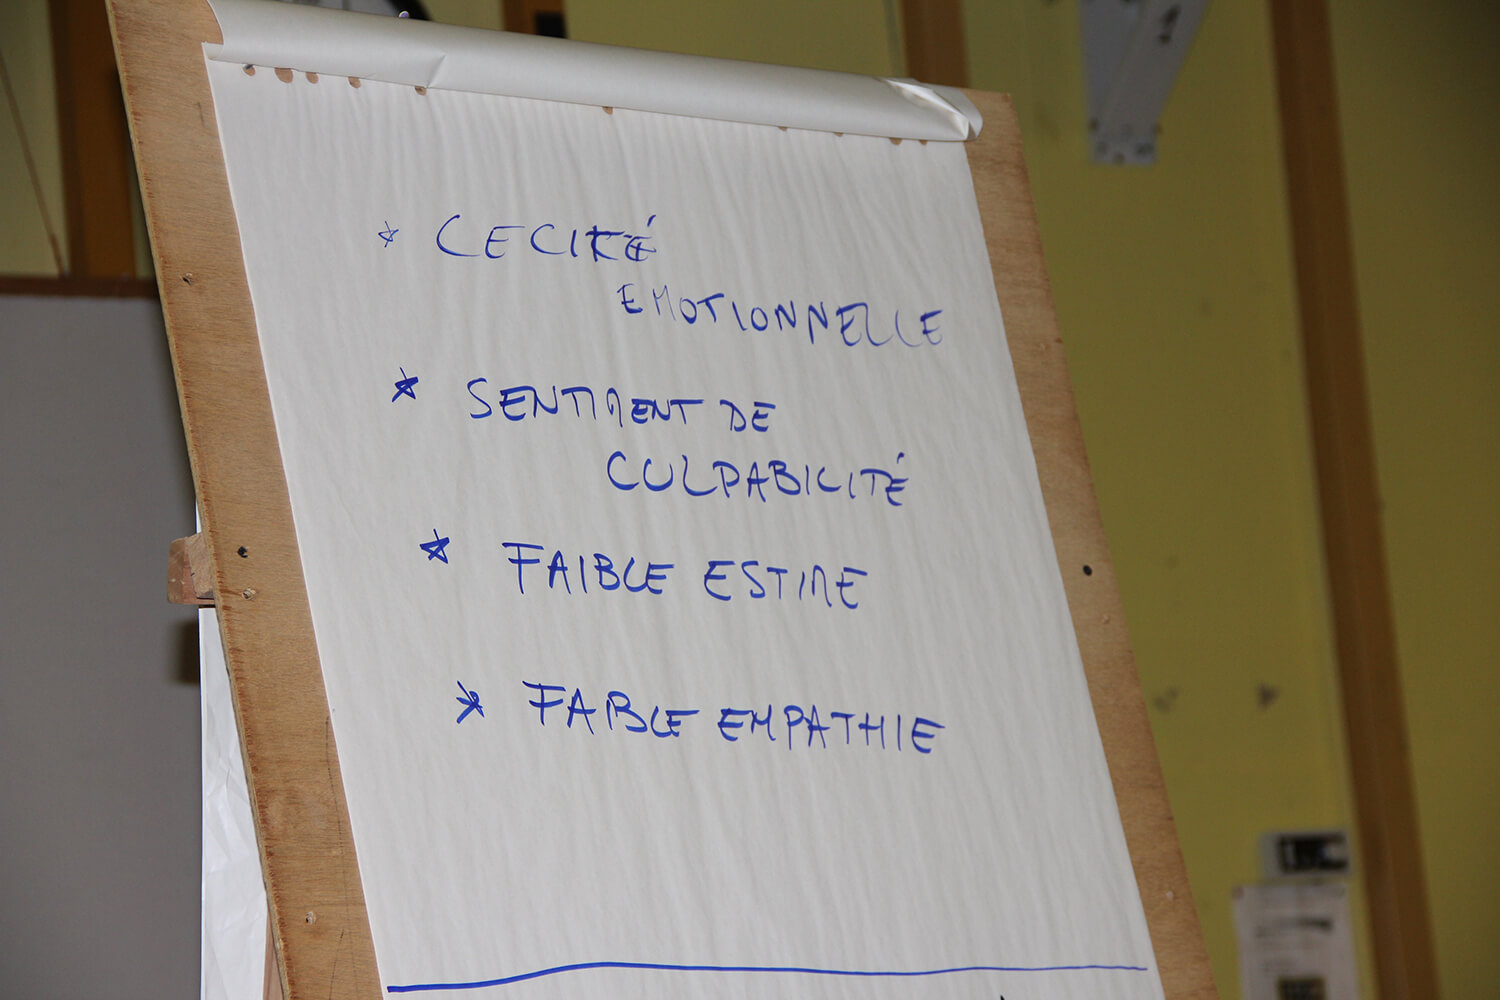 * CECITÉ
EMOTIONNELLE
* SENTIMENT DE
CULPABILITÉ
* FAIBLE ESTIME
* FAIBLE EMPATHIE